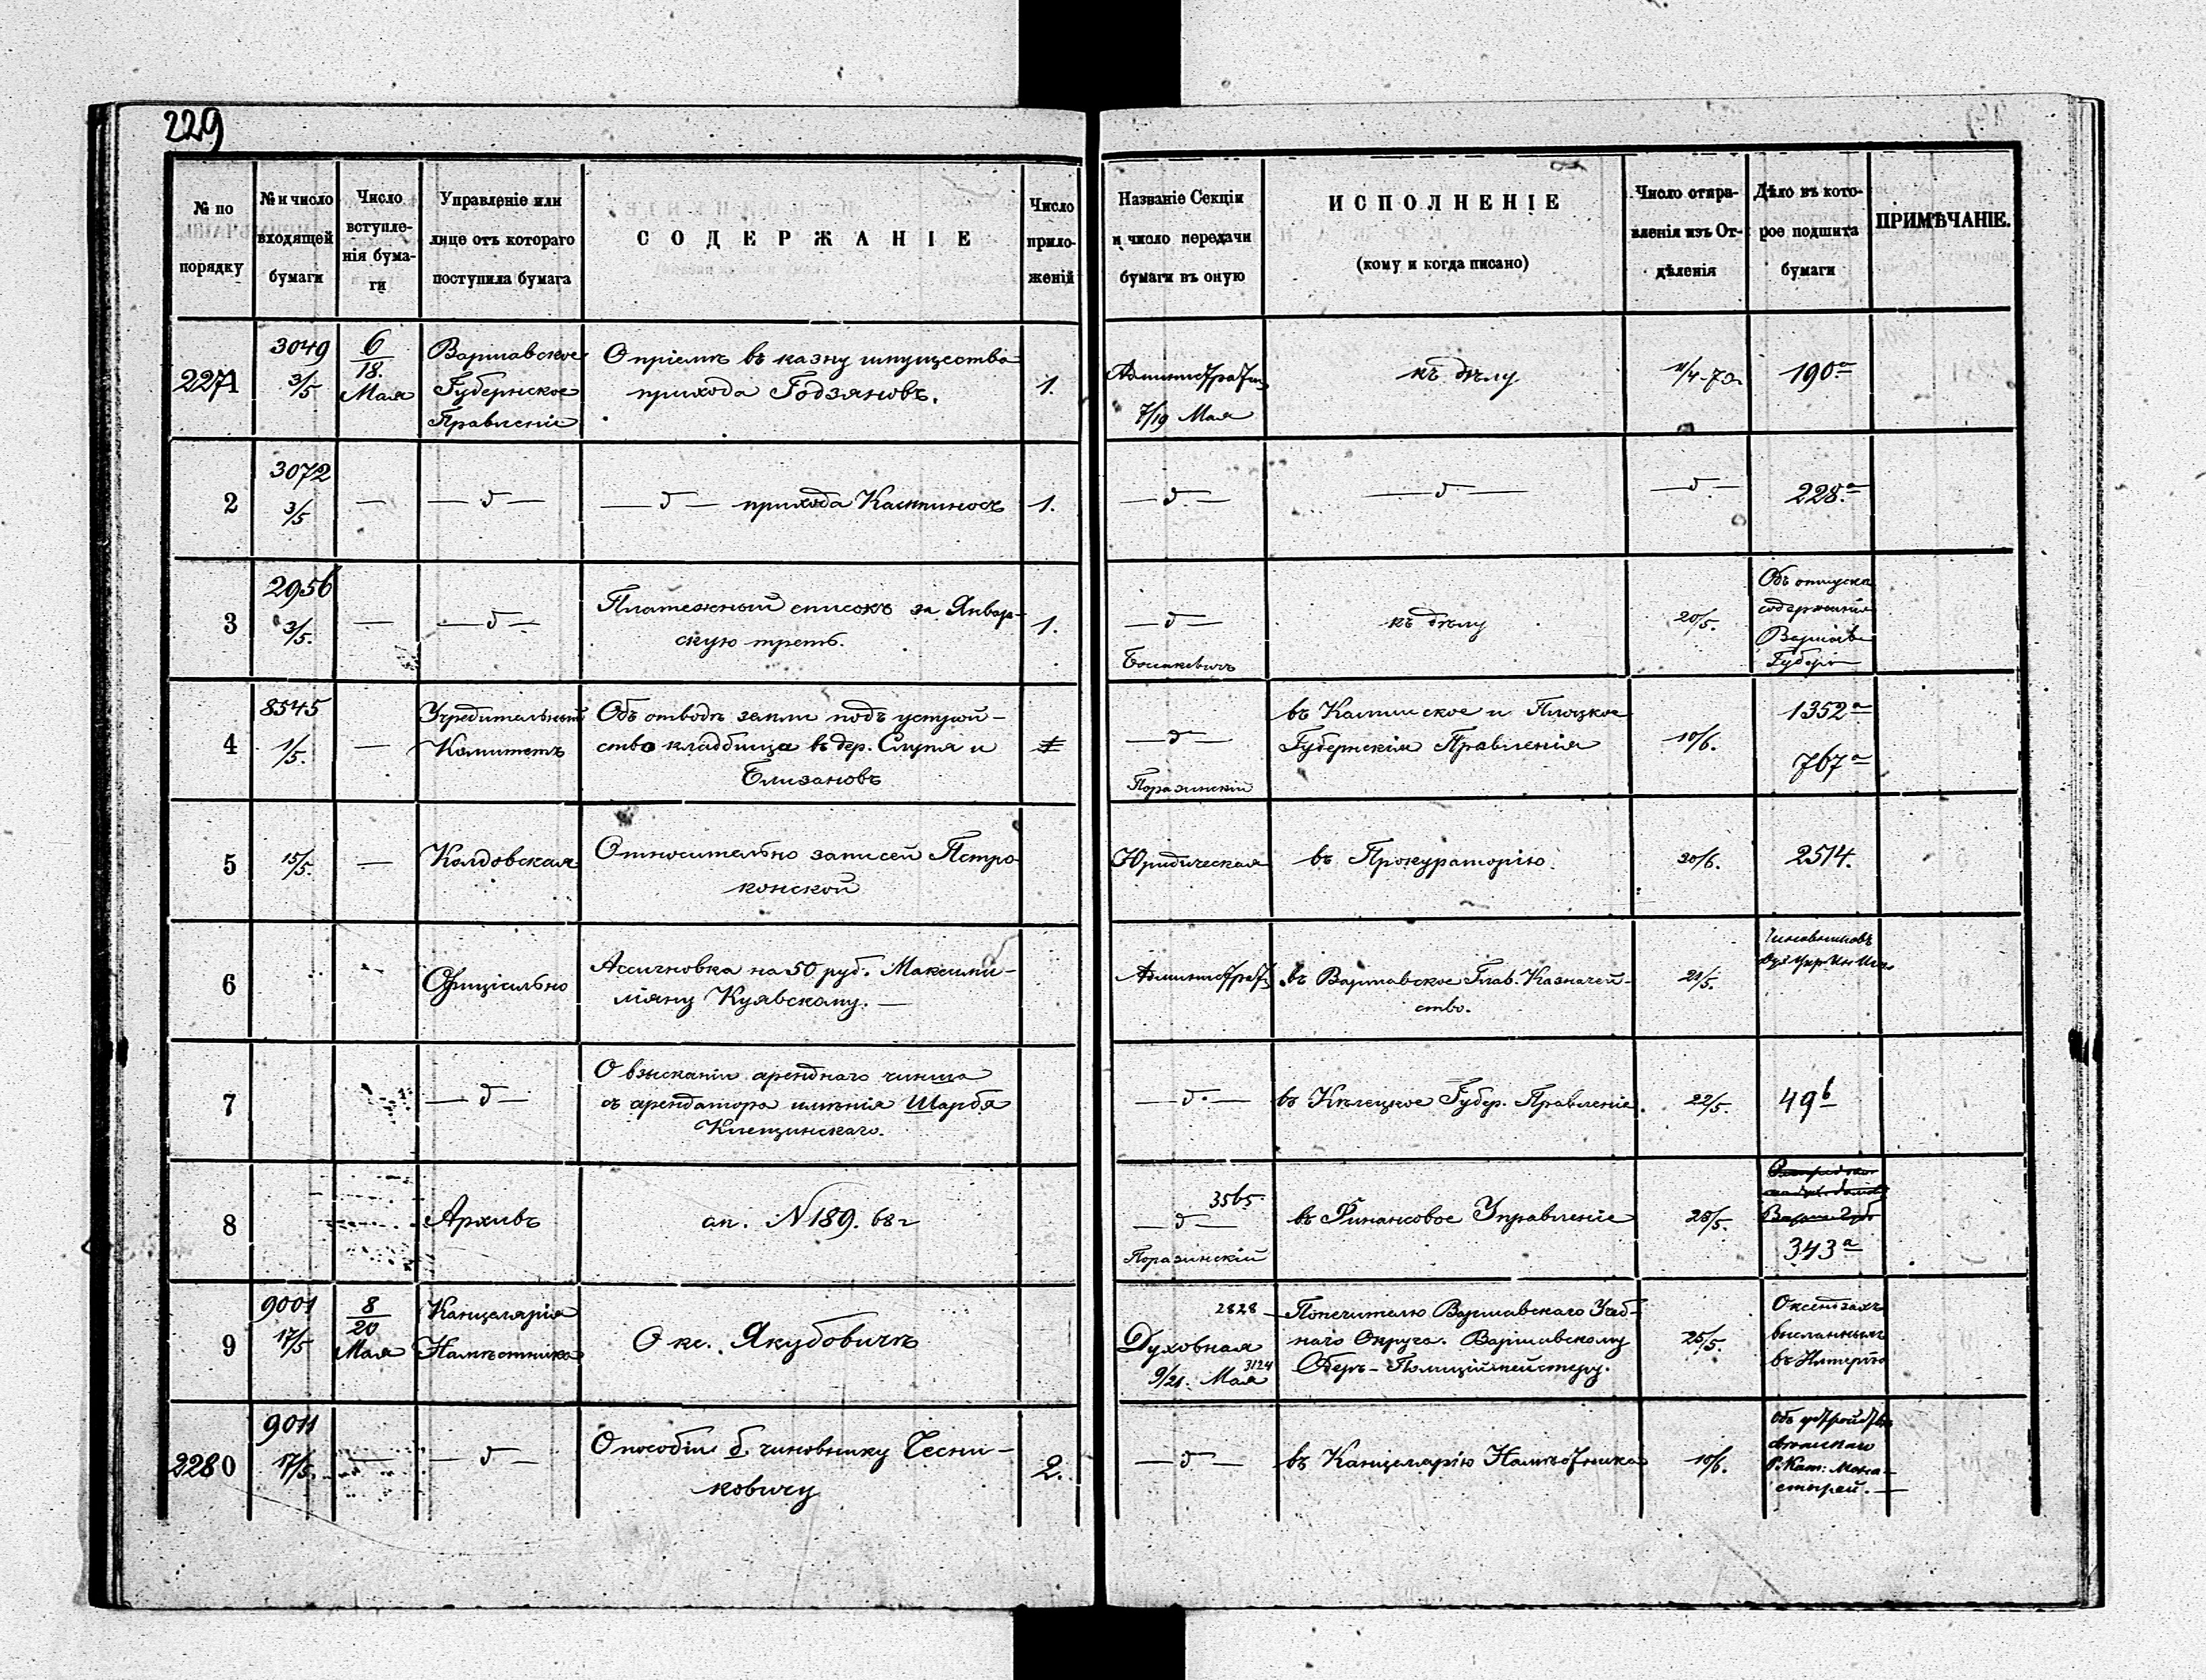 229
№ по порядку
№ и число входящей бумаги
Число вступленія бумаги
Управленіе или лице отъ котораго поступила бумага
СОДЕРЖАНІЕ
Число приложеній
Названіе Секціи и число передачи бумаги въ оную
ИСПОЛНЕНІЕ
(кому и когда писано)
Число отправленія изъ Отдѣленія
Дѣло въ которое подшита бумаги
ПРИМѢЧАНІЕ.
2271
3049
3/5
6
18.
Мая
Варшавское
Губернское
Правленіе
О пріемѣ въ казну имущества
прихода Годзяновъ.
1.
7/19 Мая
къ дѣлу
190а
2
3072
3/5
—
— д —
— д — прихода
1.
— д —
— д —
— д —
228.а
3
2956
3/5.
—
— д —
Платежный списокъ за Январ-
скую треть.
1.
— д —
къ дѣлу
20/5.
Объ отпускѣ
содержанія
Губерн
4
8545
1/5.
—
Учредительный
Комитетъ
Объ отводѣ земли подъ устрой-
ство кладбища въ дер. Слупя и
Близановъ
— д —
Поразинскій
въ Калишское и Плоцкое
Губернскія Правленія
10/6.
1352а
767а
5
15/5.
—
Колдовская
Относительно записей Петро
конской
Юридическая
въ Прокураторію.
30/6.
2514.
6
Офиціально
Ассигновка на 50 руб. Максими-
ліяну Куявскому. —
въ Варшавское Глав. Казначей-
ство.
21/5.
Чиновниковъ
7
— д —
О взысканіи аренднаго чинша
съ арендатора имѣнія Шарбя
Клещинскаго.
— д —
въ Кѣлецкое Губер. Правленіе.
22/5.
49б
8
Архивъ
ап. N 189. 68 г
3565
— д —
Поразинскій
въ Финансовое Управленіе
28/5.
343а
9
9001
17/5
8
20
Мая
Канцелярія
Намѣстника
О кс. Якубовичѣ
2828
Духовная
3124
9/21. Мая
Попечителю Варшавскаго Учеб-
наго Округа. Варшавскому
Оберъ-Полицiймейстеру.
25/5.
О ксендзахъ
высланныхъ
въ Имперію
2280
9011
17/5.
—
— д —
О пособіи б. чиновнику Чесни-
ковичу
2.
— д —
въ Канцелярію Намѣстника
10/6.
Объ устройствѣ
Р. Кат. Мона-
стырей. —